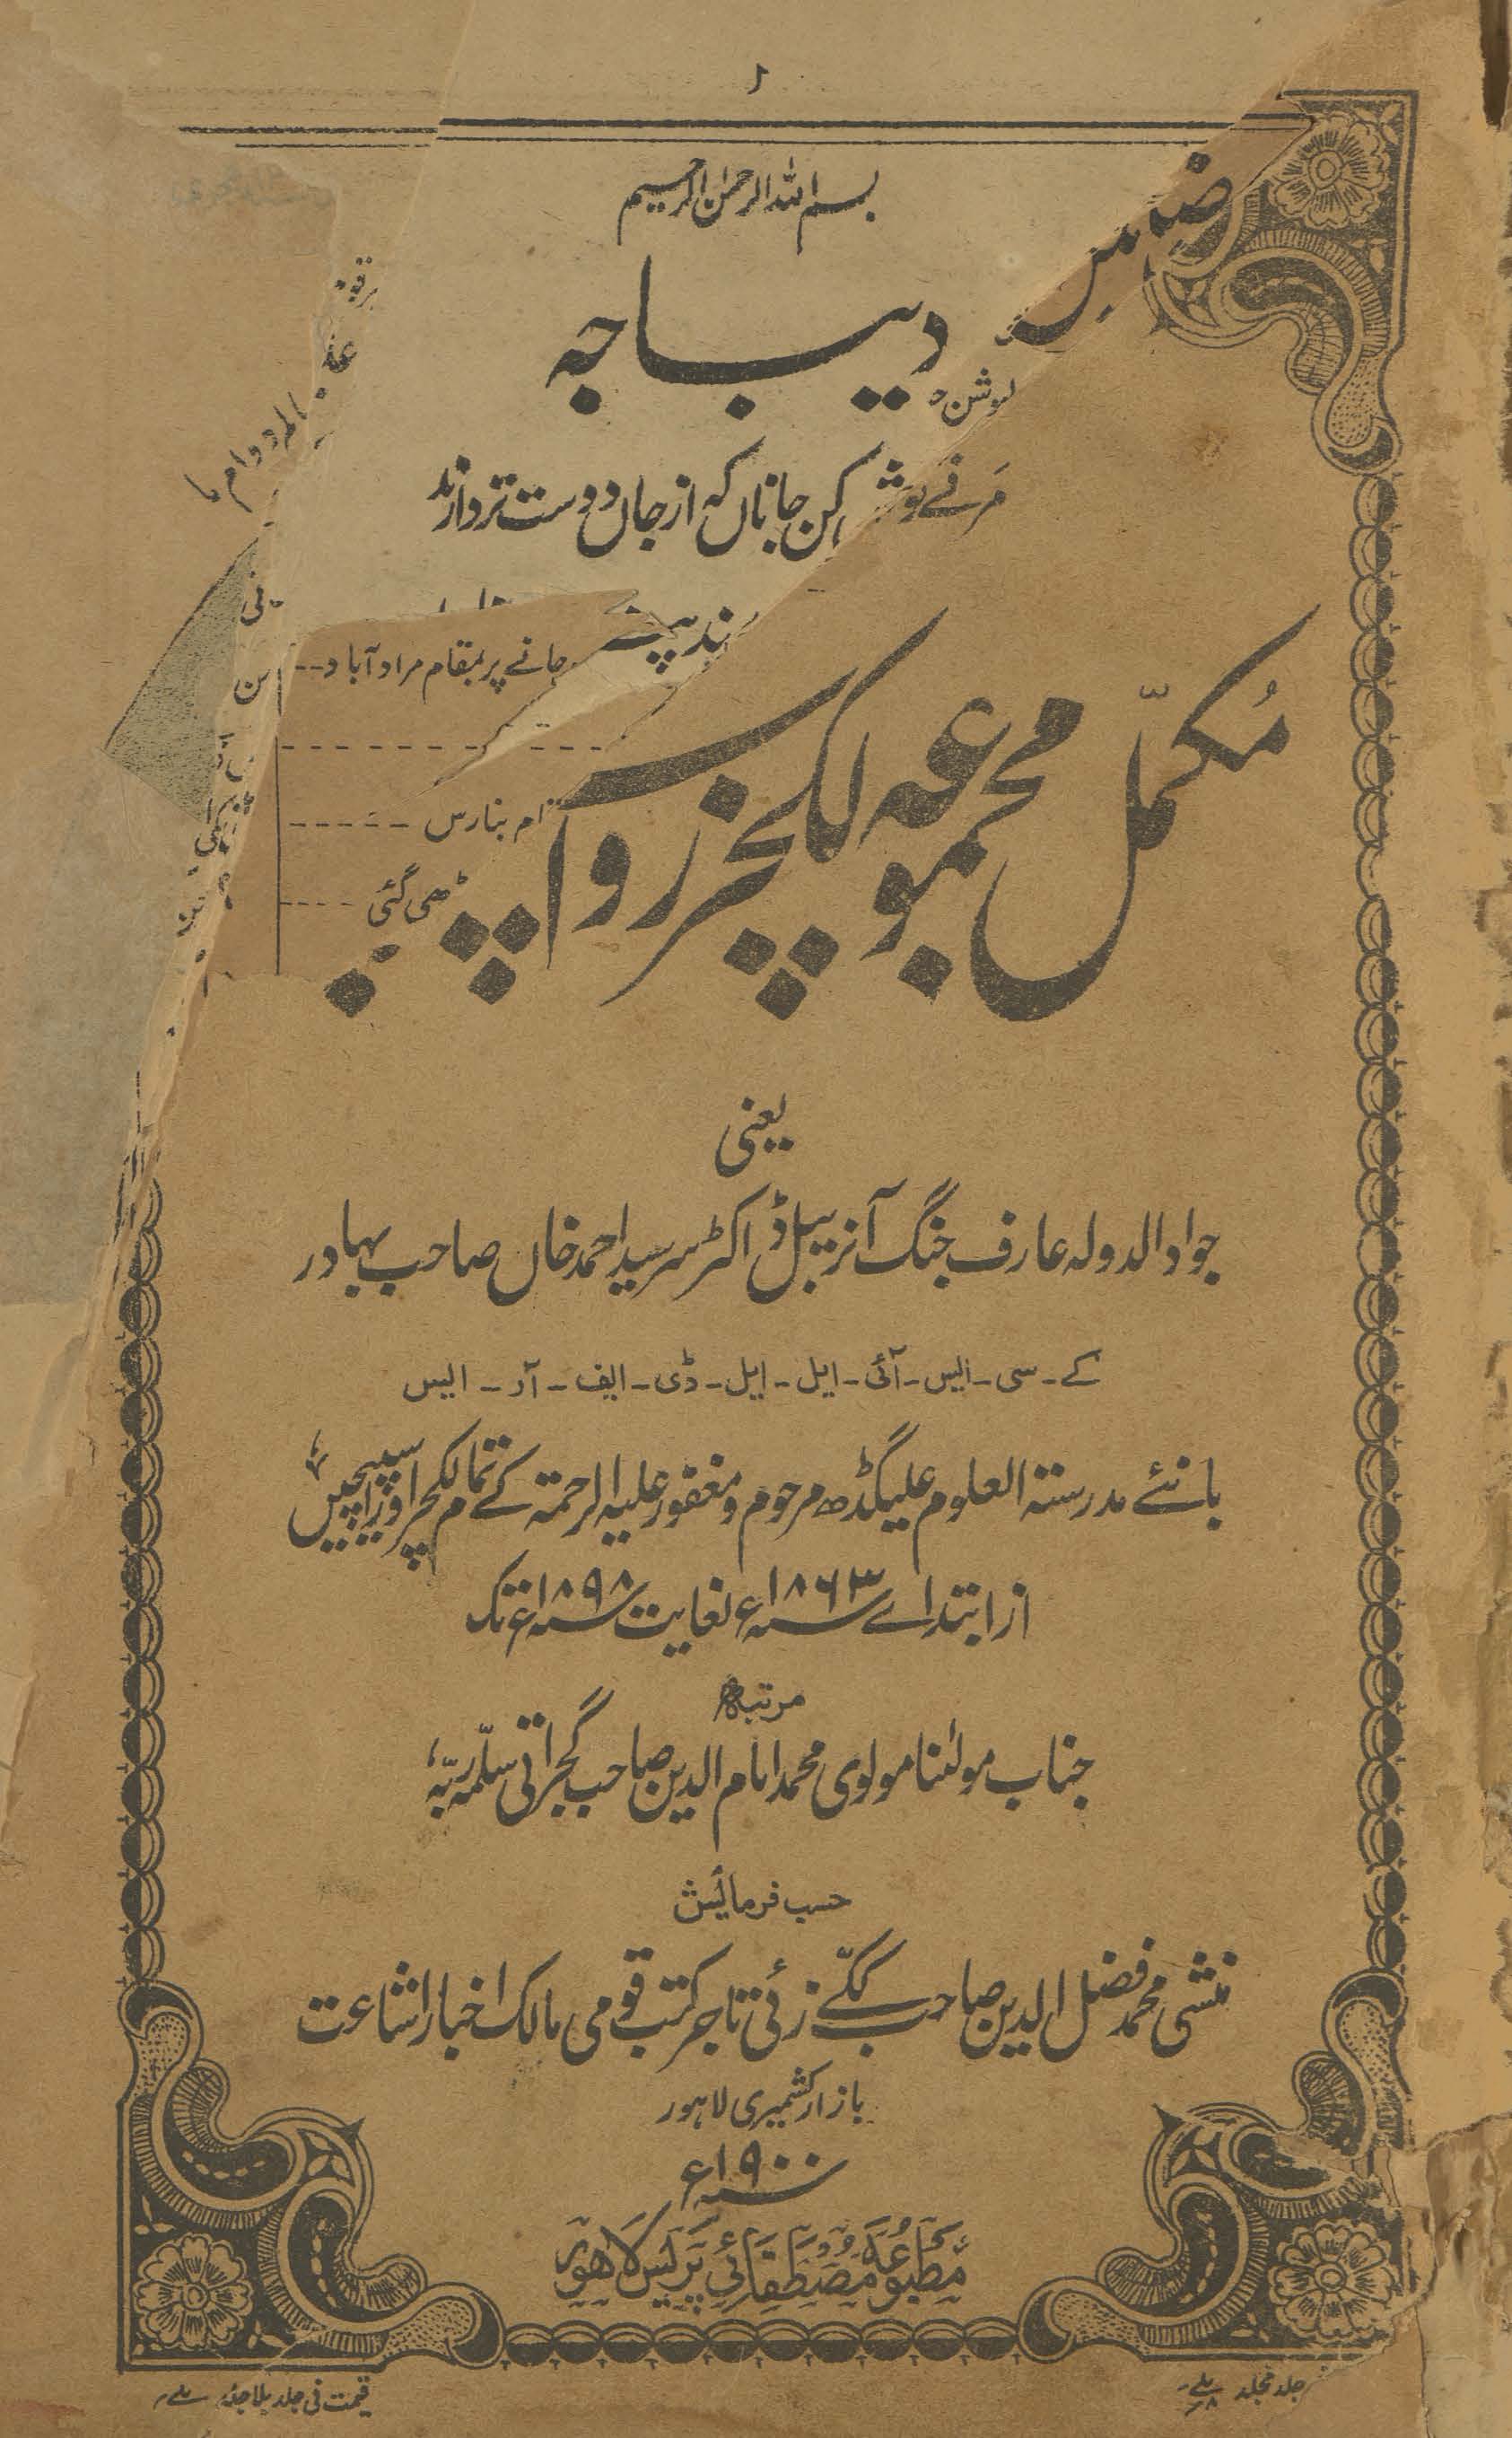 ۱
بسم اللہ الرحمن الرحیم
دیباچہ
کن جاناں کہ از جاں دوست تر دارند
جانے پر بمقام مرادآباد
بنارس
ڑھی گئی
مکمل مجموعہ لکچرز و اسپیچز
یعنی
جواد الدولہ عارف جنگ آنریبل ڈاکٹر سر سید احمد خاں صاحب بہادر
کے - سی - ایس - آئی - ایل - ایل - ڈی - ایف - آر - ایس
بانئے مدرستہ العلوم علیگڈھ مرحوم و مغفور علیہ الرحمۃ کے تمام لکچر اور اسپیچیں
از ابتداے سنہ ۱۸۶۳ء لغایت سنہ ۱۸۹۸ء تک
مرتبہ
جناب مولٰنا مولوی محمد امام الدین صاحب گجراتی سلمہ ربہ
حسب فرمائش
منشی محمد فضل الدین صاحب ککے زئی تاجر کتب قومی مالک اخبار اشاعت
بازار کشمیری لاہور
سنہ ۱۹۰۰ء
مطبوعہ مصطفائی پریس لاہور
جلد مجلد
قیمت فی جلد بلا جلد